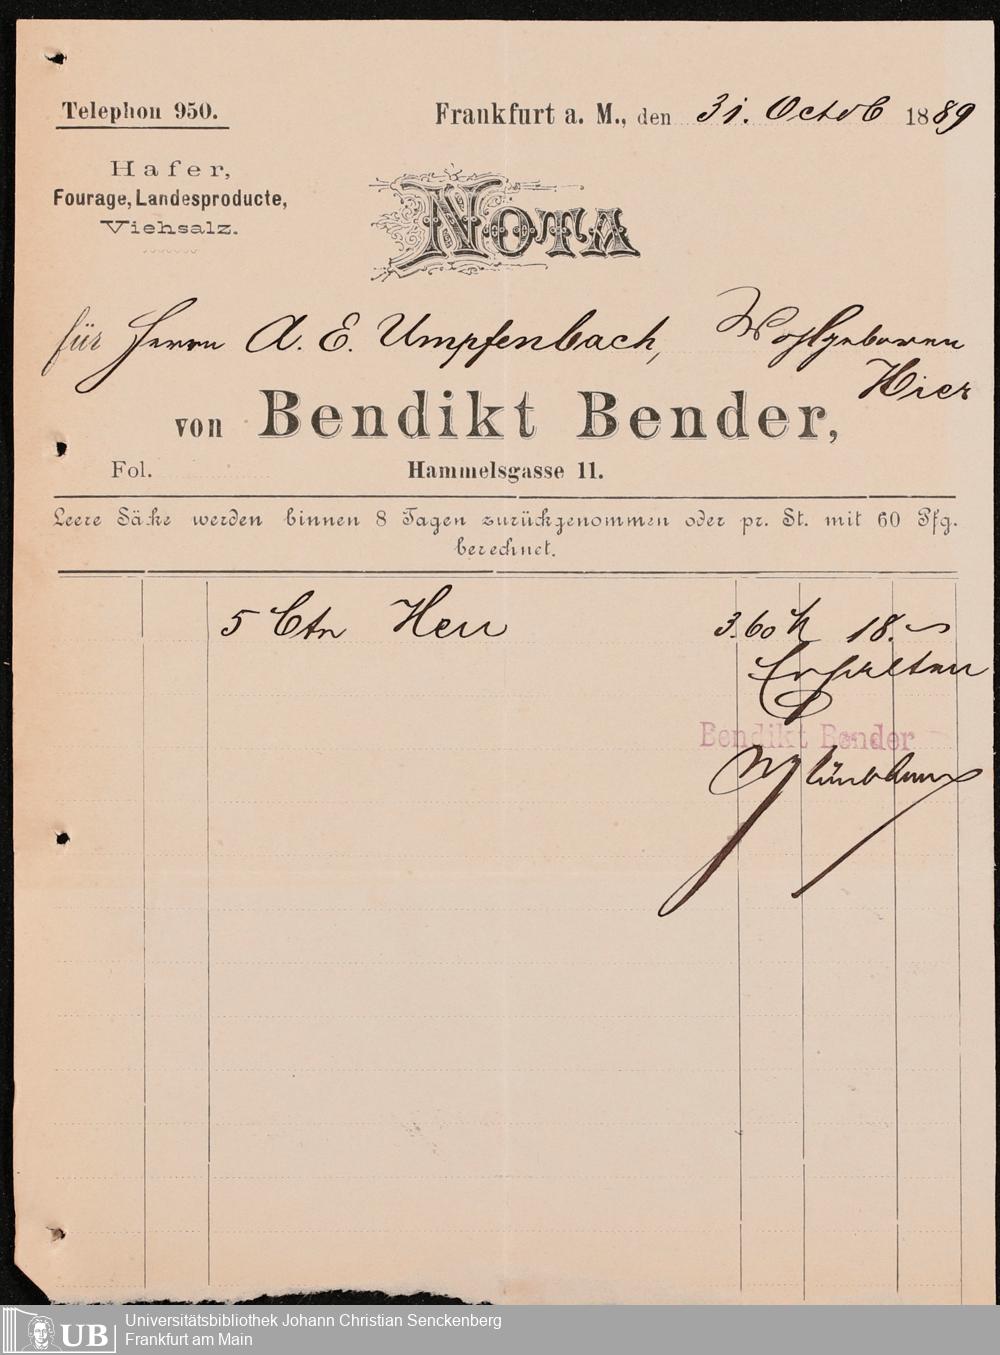 Telephon 950.
Frankfurt a. M., den 31. Octob 1889
Hafer,
Fourage, Landesproducte,
Viehsalz.
NOTA
für Herrn A. E. Umpfenbach, Wohlgeboren
Hier
von Bendikt Bender,
Fol.
Hammelsgasse 11.
Leere Säcke werden binnen 8 Tagen zurückgenommen oder pr. St. mit 60 Pfg.
berechnet.
5 Ctn Heu 3.60 M 18.-
Erhalten
Bendikt Bender
UB
Universitätsbibliothek Johann Christian Senckenberg
Frankfurt am Main